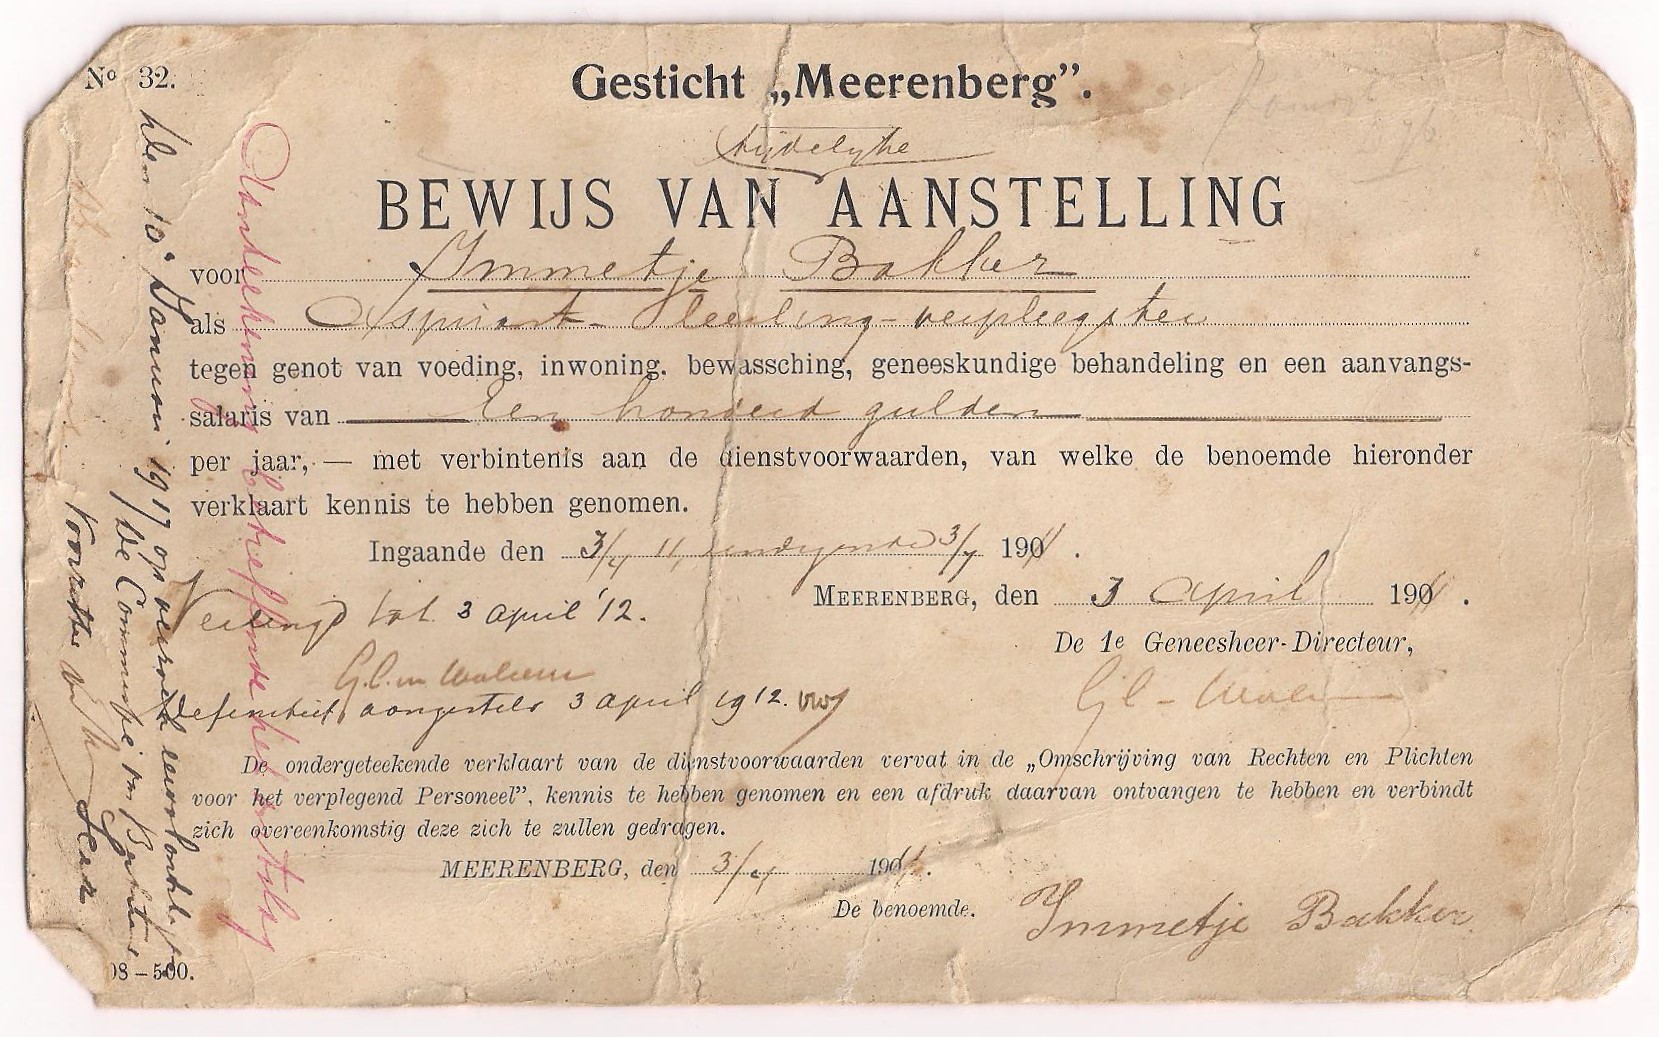 No 32.
Gesticht „Meerenberg".
tijdelijke
BEWIJS VAN AANSTELLING
voor Immetje Bakker
als Aspirant-Leerling-verpleegster
tegen genot van voeding, inwoning, bewassching, geneeskundige behandeling en een aanvangs-
salaris van Een honderd gulden
per jaar, — met verbintenis aan de dienstvoorwaarden, van welke de benoemde hieronder
verklaart kennis te hebben genomen.
Ingaande den 3/4 11, eindigende 3/7 1911.
MEERENBERG, den 3 April 1911.
Verlengd tot 3 april '12.
De 1e Geneesheer-Directeur,
Definitief aangesteld 3 april 1912.
De ondergeteekende verklaart van de dienstvoorwaarden vervat in de „Omschrijving van Rechten en Plichten
voor het verplegend Personeel", kennis te hebben genomen en een afdruk daarvan ontvangen te hebben en verbindt
zich overeenkomstig deze zich te zullen gedragen.
MEERENBERG, den 3/4 1911.
De benoemde.
Immetje Bakker
08–500.
Aanteekening betreffende
den 10 Januari 1917 op verzoek eervol ontsl.
De Commissie
Voorzitter